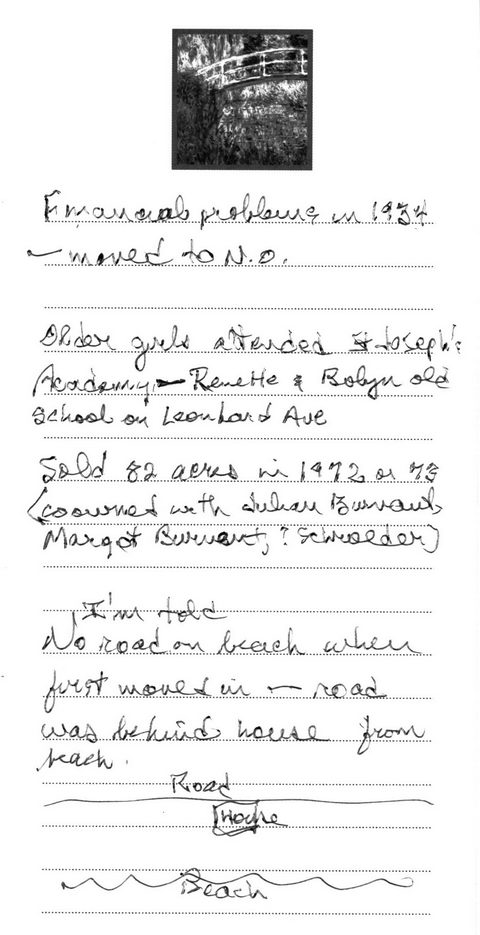 Financial problems in 1934
— moved to N.O.
Older girls attended St Joseph's
Academy — Renette & Robyn old
School on Leonhard Ave
Sold 82 acres in 1972 or 73
(coowned with Julian Burvant,
Margot Burvant, ? Schroeder)
I'm told
No road on beach when
first moved in — road
was behind house from
beach.
Road
House
Beach